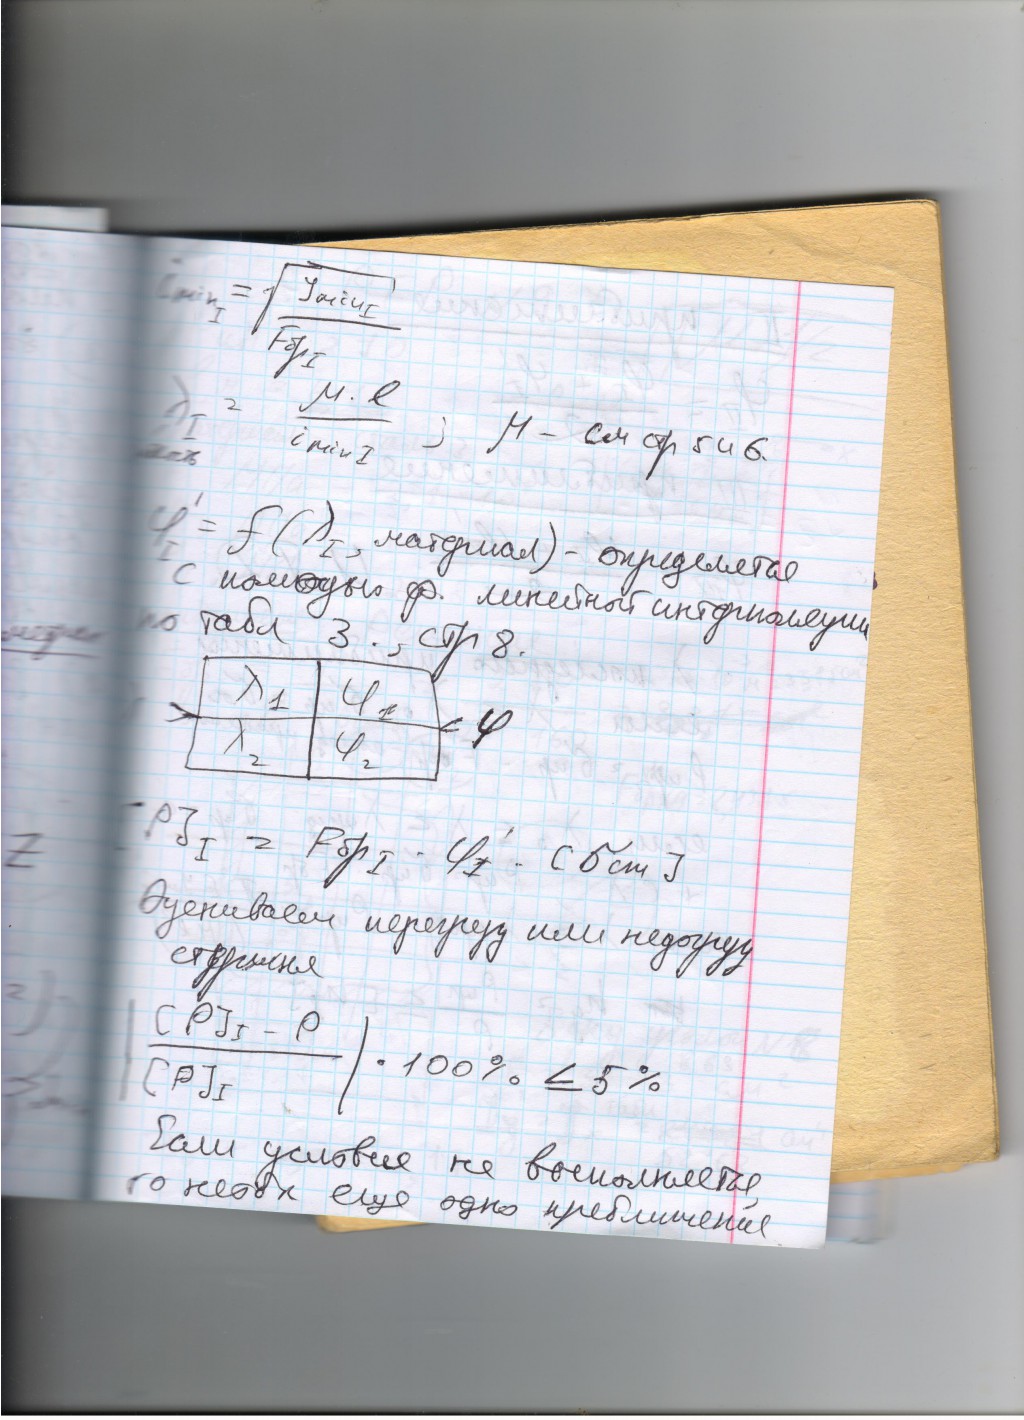 i min I = √ J min I / Fбр I
λ I max = μ · l / i min I ; μ – см стр 5 и 6.
φ' I = f (λ I, материал) – определяется
с помощью ф. линейной интерполяции
по табл 3., стр 8.
λ1 φ1
> < φ
λ2 φ2
[P] I = Fбр I · φ' I · [σст]
Оцениваем перегруз или недогруз
стержня
| [P] I – P / [P] I | · 100% ≤ 5%
Если условие не выполняется,
то необх еще одно преближение
Z